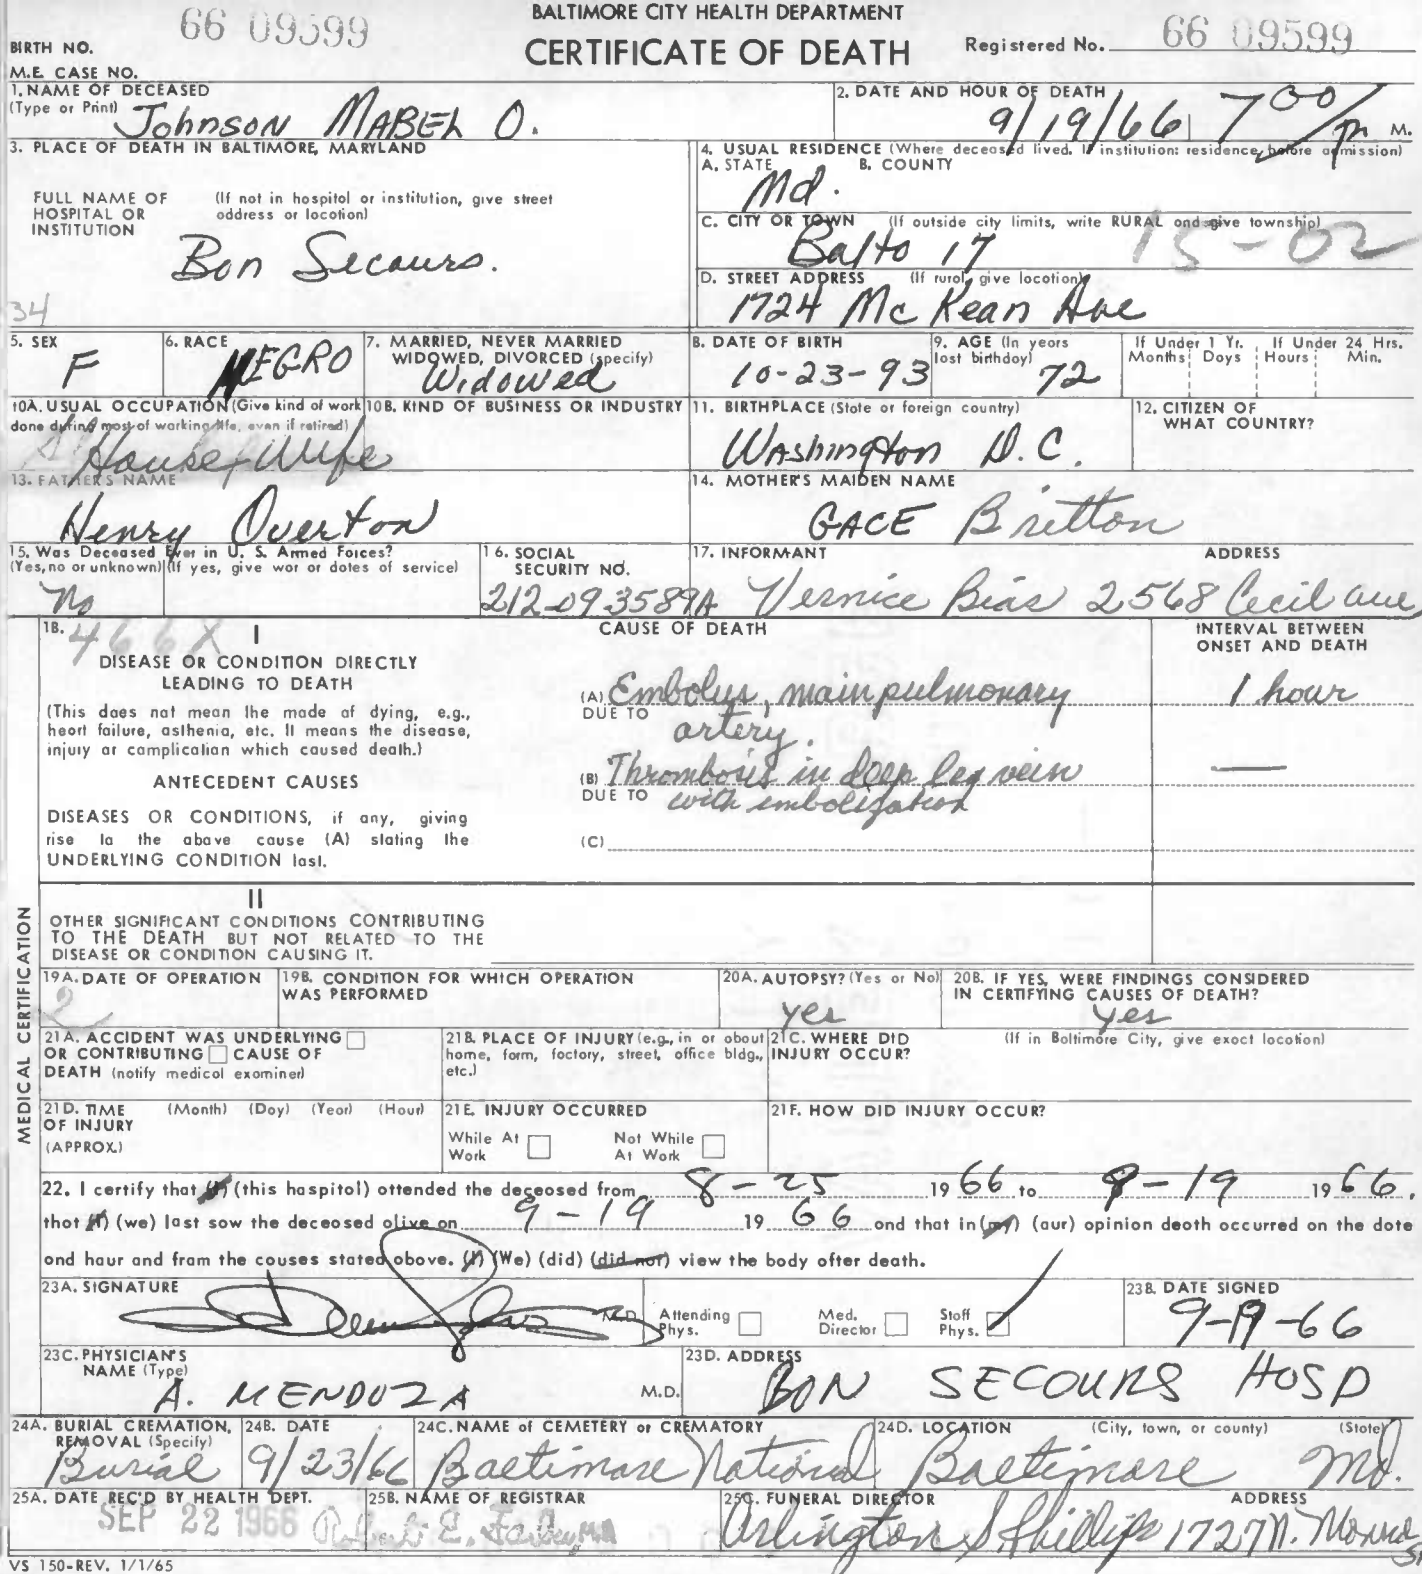 BALTIMORE CITY HEALTH DEPARTMENT
CERTIFICATE OF DEATH
BIRTH NO. 66 09599
Registered No. 66 09599
M.E. CASE NO.
1. NAME OF DECEASED (Type or Print) Johnson MABEL O.
2. DATE AND HOUR OF DEATH 9/19/66 7 00/P M.
3. PLACE OF DEATH IN BALTIMORE, MARYLAND
FULL NAME OF HOSPITAL OR INSTITUTION (If not in hospital or institution, give street address or location)
Bon Secours.
34
4. USUAL RESIDENCE (Where deceased lived. If institution: residence before admission)
A. STATE Md. B. COUNTY
C. CITY OR TOWN (If outside city limits, write RURAL and give township)
Balto 17 15-02
D. STREET ADDRESS (If rural, give location)
1724 Mc Kean Ave
5. SEX F
6. RACE NEGRO
7. MARRIED, NEVER MARRIED WIDOWED, DIVORCED (specify) Widowed
8. DATE OF BIRTH 10-23-93
9. AGE (In years last birthday) 72
If Under 1 Yr. Months Days
If Under 24 Hrs. Hours Min.
10A. USUAL OCCUPATION (Give kind of work done during most of working life, even if retired) House Wife
10B. KIND OF BUSINESS OR INDUSTRY
11. BIRTHPLACE (State or foreign country) Washington D.C.
12. CITIZEN OF WHAT COUNTRY?
13. FATHER'S NAME Henry Overton
14. MOTHER'S MAIDEN NAME GACE Britton
15. Was Deceased Ever in U. S. Armed Forces? (Yes, no or unknown) (If yes, give war or dates of service) No
16. SOCIAL SECURITY NO. 212-09-3589A
17. INFORMANT ADDRESS Vernice Bias 2568 Cecil ave
MEDICAL CERTIFICATION
18. 466X I
DISEASE OR CONDITION DIRECTLY LEADING TO DEATH
(This does not mean the mode of dying, e.g., heart failure, asthenia, etc. It means the disease, injury or complication which caused death.)
ANTECEDENT CAUSES
DISEASES OR CONDITIONS, if any, giving rise to the above cause (A) stating the UNDERLYING CONDITION last.
CAUSE OF DEATH
INTERVAL BETWEEN ONSET AND DEATH
(A) Embolus, main pulmonary artery. 1 hour
DUE TO
(B) Thrombosis in deep leg vein with embolization —
DUE TO
(C)
II
OTHER SIGNIFICANT CONDITIONS CONTRIBUTING TO THE DEATH BUT NOT RELATED TO THE DISEASE OR CONDITION CAUSING IT.
19A. DATE OF OPERATION 2
19B. CONDITION FOR WHICH OPERATION WAS PERFORMED
20A. AUTOPSY? (Yes or No) yes
20B. IF YES, WERE FINDINGS CONSIDERED IN CERTIFYING CAUSES OF DEATH? yes
21A. ACCIDENT WAS UNDERLYING OR CONTRIBUTING CAUSE OF DEATH (notify medical examiner)
21B. PLACE OF INJURY (e.g., in or about home, farm, factory, street, office bldg., etc.)
21C. WHERE DID INJURY OCCUR? (If in Baltimore City, give exact location)
21D. TIME OF INJURY (APPROX.) (Month) (Day) (Year) (Hour)
21E. INJURY OCCURRED While At Work Not While At Work
21F. HOW DID INJURY OCCUR?
22. I certify that (I) (this hospital) attended the deceased from 8-25 1966 to 9-19 1966,
that (I) (we) last saw the deceased alive on 9-19 1966 and that in (my) (our) opinion death occurred on the date
and hour and from the causes stated above. (I) (We) (did) (did not) view the body after death.
23A. SIGNATURE M.D.
Attending Phys. Med. Director Staff Phys.
23B. DATE SIGNED 9-19-66
23C. PHYSICIAN'S NAME (Type) A. MENDOZA M.D.
23D. ADDRESS BON SECOURS HOSP
24A. BURIAL CREMATION, REMOVAL (Specify) Burial
24B. DATE 9/23/66
24C. NAME of CEMETERY or CREMATORY Baltimore National
24D. LOCATION (City, town, or county) (State) Baltimore Md.
25A. DATE REC'D BY HEALTH DEPT. SEP 22 1966
25B. NAME OF REGISTRAR Robert E. Farber, M.D.
25C. FUNERAL DIRECTOR ADDRESS Arlington S. Phillips 1727 N. Monroe St
VS 150-REV. 1/1/65